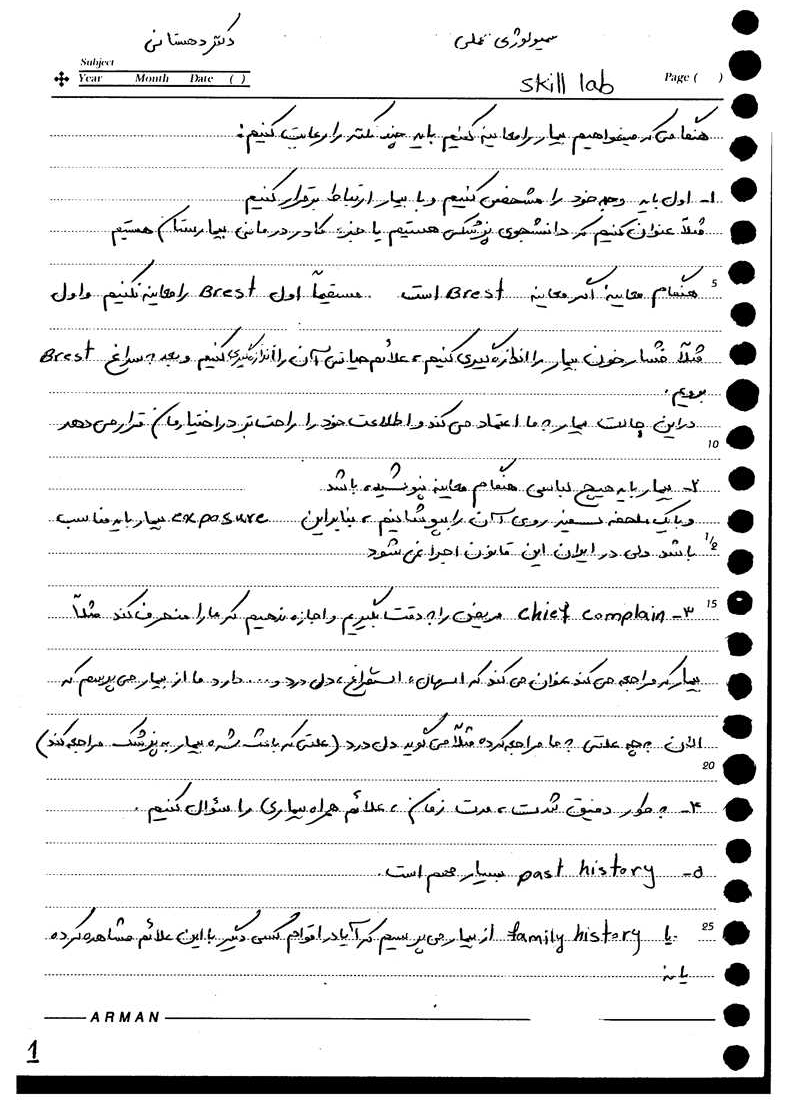 سمیولوژی عملی
دکتر دهستانی
Subject
Year Month Date ( )
skill lab
Page ( )
هنگامی که میخواهیم بیمار را معاینه کنیم باید چند نکته را رعایت کنیم:
۱- اول باید وجه خود را مشخص کنیم و با بیمار ارتباط برقرار کنیم
مثلاً عنوان کنیم که دانشجوی پزشکی هستیم یا جزء کادر درمانی بیمارستان هستیم
5 هنگام معاینه اگر معاینه Brest است مستقیماً اول Brest را معاینه نکنیم و اول
مثلاً فشار خون بیمار را اندازه گیری کنیم، علائم حیاتی آن را اندازه گیری کنیم و بعد به سراغ Brest
برویم.
در این حالت بیمار به ما اعتماد می کند و اطلاعت خود را راحت تر در اختیارمان قرار می دهد
10
۲- بیمار باید هیچ لباسی هنگام معاینه نپوشیده باشد
و با یک ملحفه سفید روی آن را بپوشانیم، بنابراین exposure بیمار باید مناسب
1/2 باشد ولی در ایران این قانون اجرا نمی شود
15 ۳- chief complain مریض را به دقت بگیریم و اجازه ندهیم که ما را منحرف کند مثلاً
بیمار که مراجعه می کند عنوان می کند که اسهال، استفراغ، دل درد و... دارد ما از بیمار می پرسیم که
الان به چه علتی به ما مراجعه کرده مثلاً می گوید دل درد (علتی که باعث شده بیمار به پزشک مراجعه کند)
20
۴- به طور دقیق شدت، مدت زمان، علائم همراه بیماری را سؤال کنیم.
۵- past history بسیار مهم است.
25 یا family history از بیمار می پرسیم که آیا در اقوام کسی دیگر با این علائم مشاهده کرده
یا نه
ARMAN
1